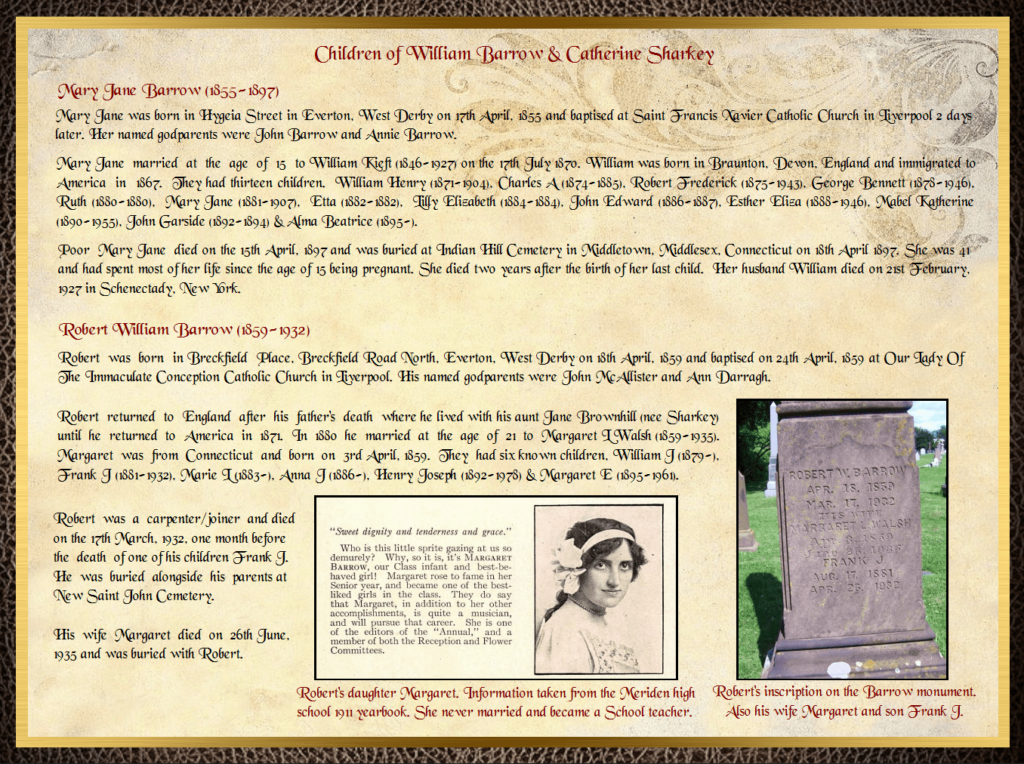 Children of William Barrow & Catherine Sharkey
Mary Jane Barrow (1855-1897)
Mary Jane was born in Hygeia Street in Everton, West Derby on 17th April, 1855 and baptised at Saint Francis Xavier Catholic Church in Liverpool 2 days
later. Her named godparents were John Barrow and Annie Barrow.
Mary Jane married at the age of 15 to William Kieft (1846-1927) on the 17th July 1870. William was born in Braunton, Devon, England and immigrated to
America in 1867. They had thirteen children. William Henry (1871-1904), Charles A (1874-1885), Robert Frederick (1875-1943), George Bennett (1878-1946),
Ruth (1880-1880), Mary Jane (1881-1907), Etta (1882-1882), Lilly Elizabeth (1884-1884), John Edward (1886-1887), Esther Eliza (1888-1946), Mabel Katherine
(1890-1955), John Garside (1892-1894) & Alma Beatrice (1895-).
Poor Mary Jane died on the 15th April, 1897 and was buried at Indian Hill Cemetery in Middletown, Middlesex, Connecticut on 18th April 1897. She was 41
and had spent most of her life since the age of 15 being pregnant. She died two years after the birth of her last child. Her husband William died on 21st February,
1927 in Schenectady, New York.
Robert William Barrow (1859-1932)
Robert was born in Breckfield Place, Breckfield Road North, Everton, West Derby on 18th April, 1859 and baptised on 24th April, 1859 at Our Lady Of
The Immaculate Conception Catholic Church in Liverpool. His named godparents were John McAllister and Ann Darragh.
Robert returned to England after his father's death where he lived with his aunt Jane Brownhill (nee Sharkey)
until he returned to America in 1871. In 1880 he married at the age of 21 to Margaret L Walsh (1859-1935).
Margaret was from Connecticut and born on 3rd April, 1859. They had six known children, William J (1879-),
Frank J (1881-1932), Marie L (1883-), Anna J (1886-), Henry Joseph (1892-1978) & Margaret E (1895-1961).
Robert was a carpenter/joiner and died
on the 17th March, 1932, one month before
the death of one of his children Frank J.
He was buried alongside his parents at
New Saint John Cemetery.
His wife Margaret died on 26th June,
1935 and was buried with Robert.
"Sweet dignity and tenderness and grace."
Who is this little sprite gazing at us so
demurely? Why, so it is, it's MARGARET
BARROW, our Class infant and best-be-
haved girl! Margaret rose to fame in her
Senior year, and became one of the best-
liked girls in the class. They do say
that Margaret, in addition to her other
accomplishments, is quite a musician,
and will pursue that career. She is one
of the editors of the "Annual," and a
member of both the Reception and Flower
Committees.
Robert's daughter Margaret. Information taken from the Meriden high
school 1911 yearbook. She never married and became a School teacher.
ROBERT W. BARROW
APR. 18, 1859
MAR. 17, 1932
HIS WIFE
MARGARET L. WALSH
FRANK J.
AUG. 17, 1881
Robert's inscription on the Barrow monument.
Also his wife Margaret and son Frank J.